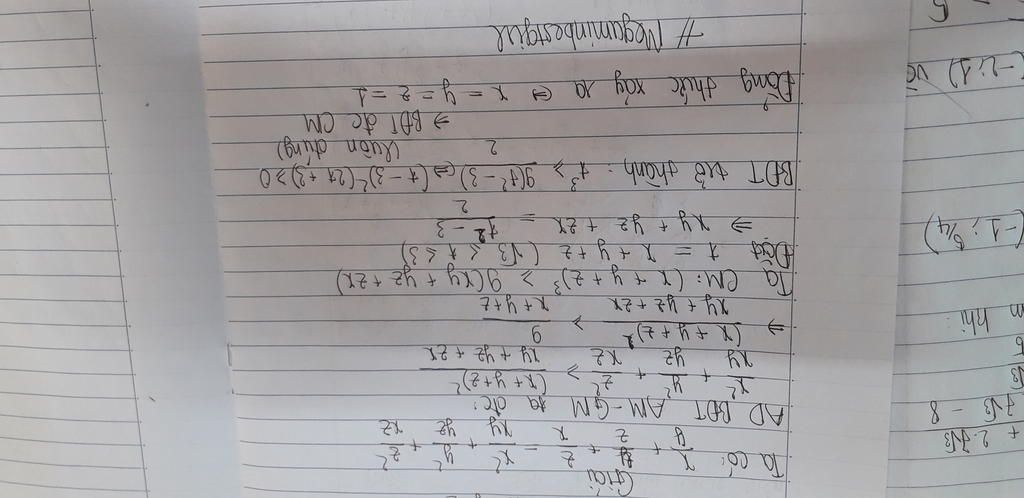 Giải
Ta có: x/y + y/z + z/x = x²/xy + y²/yz + z²/xz
AD BĐT AM-GM ta đc:
x²/xy + y²/yz + z²/xz ≥ (x+y+z)²/(xy+yz+zx)
⇒ (x+y+z)²/(xy+yz+zx) ≥ 9/(x+y+z)
Ta CM: (x+y+z)³ ≥ 9(xy+yz+zx)
Đặt t = x+y+z (√3 ≤ t ≤ 3)
⇒ xy+yz+zx = (t²-3)/2
BĐT trở thành: t³ ≥ 9(t²-3)/2 ⇔ (t-3)²(2t+3) ≥ 0
(luôn đúng)
⇒ BĐT đc CM
Đẳng thức xảy ra ⇔ x = y = z = 1
# Megaminbestgirl
+ 2.7√3
7√3 - 8
m khi:
(-1; 5/4)
(-2;1) và